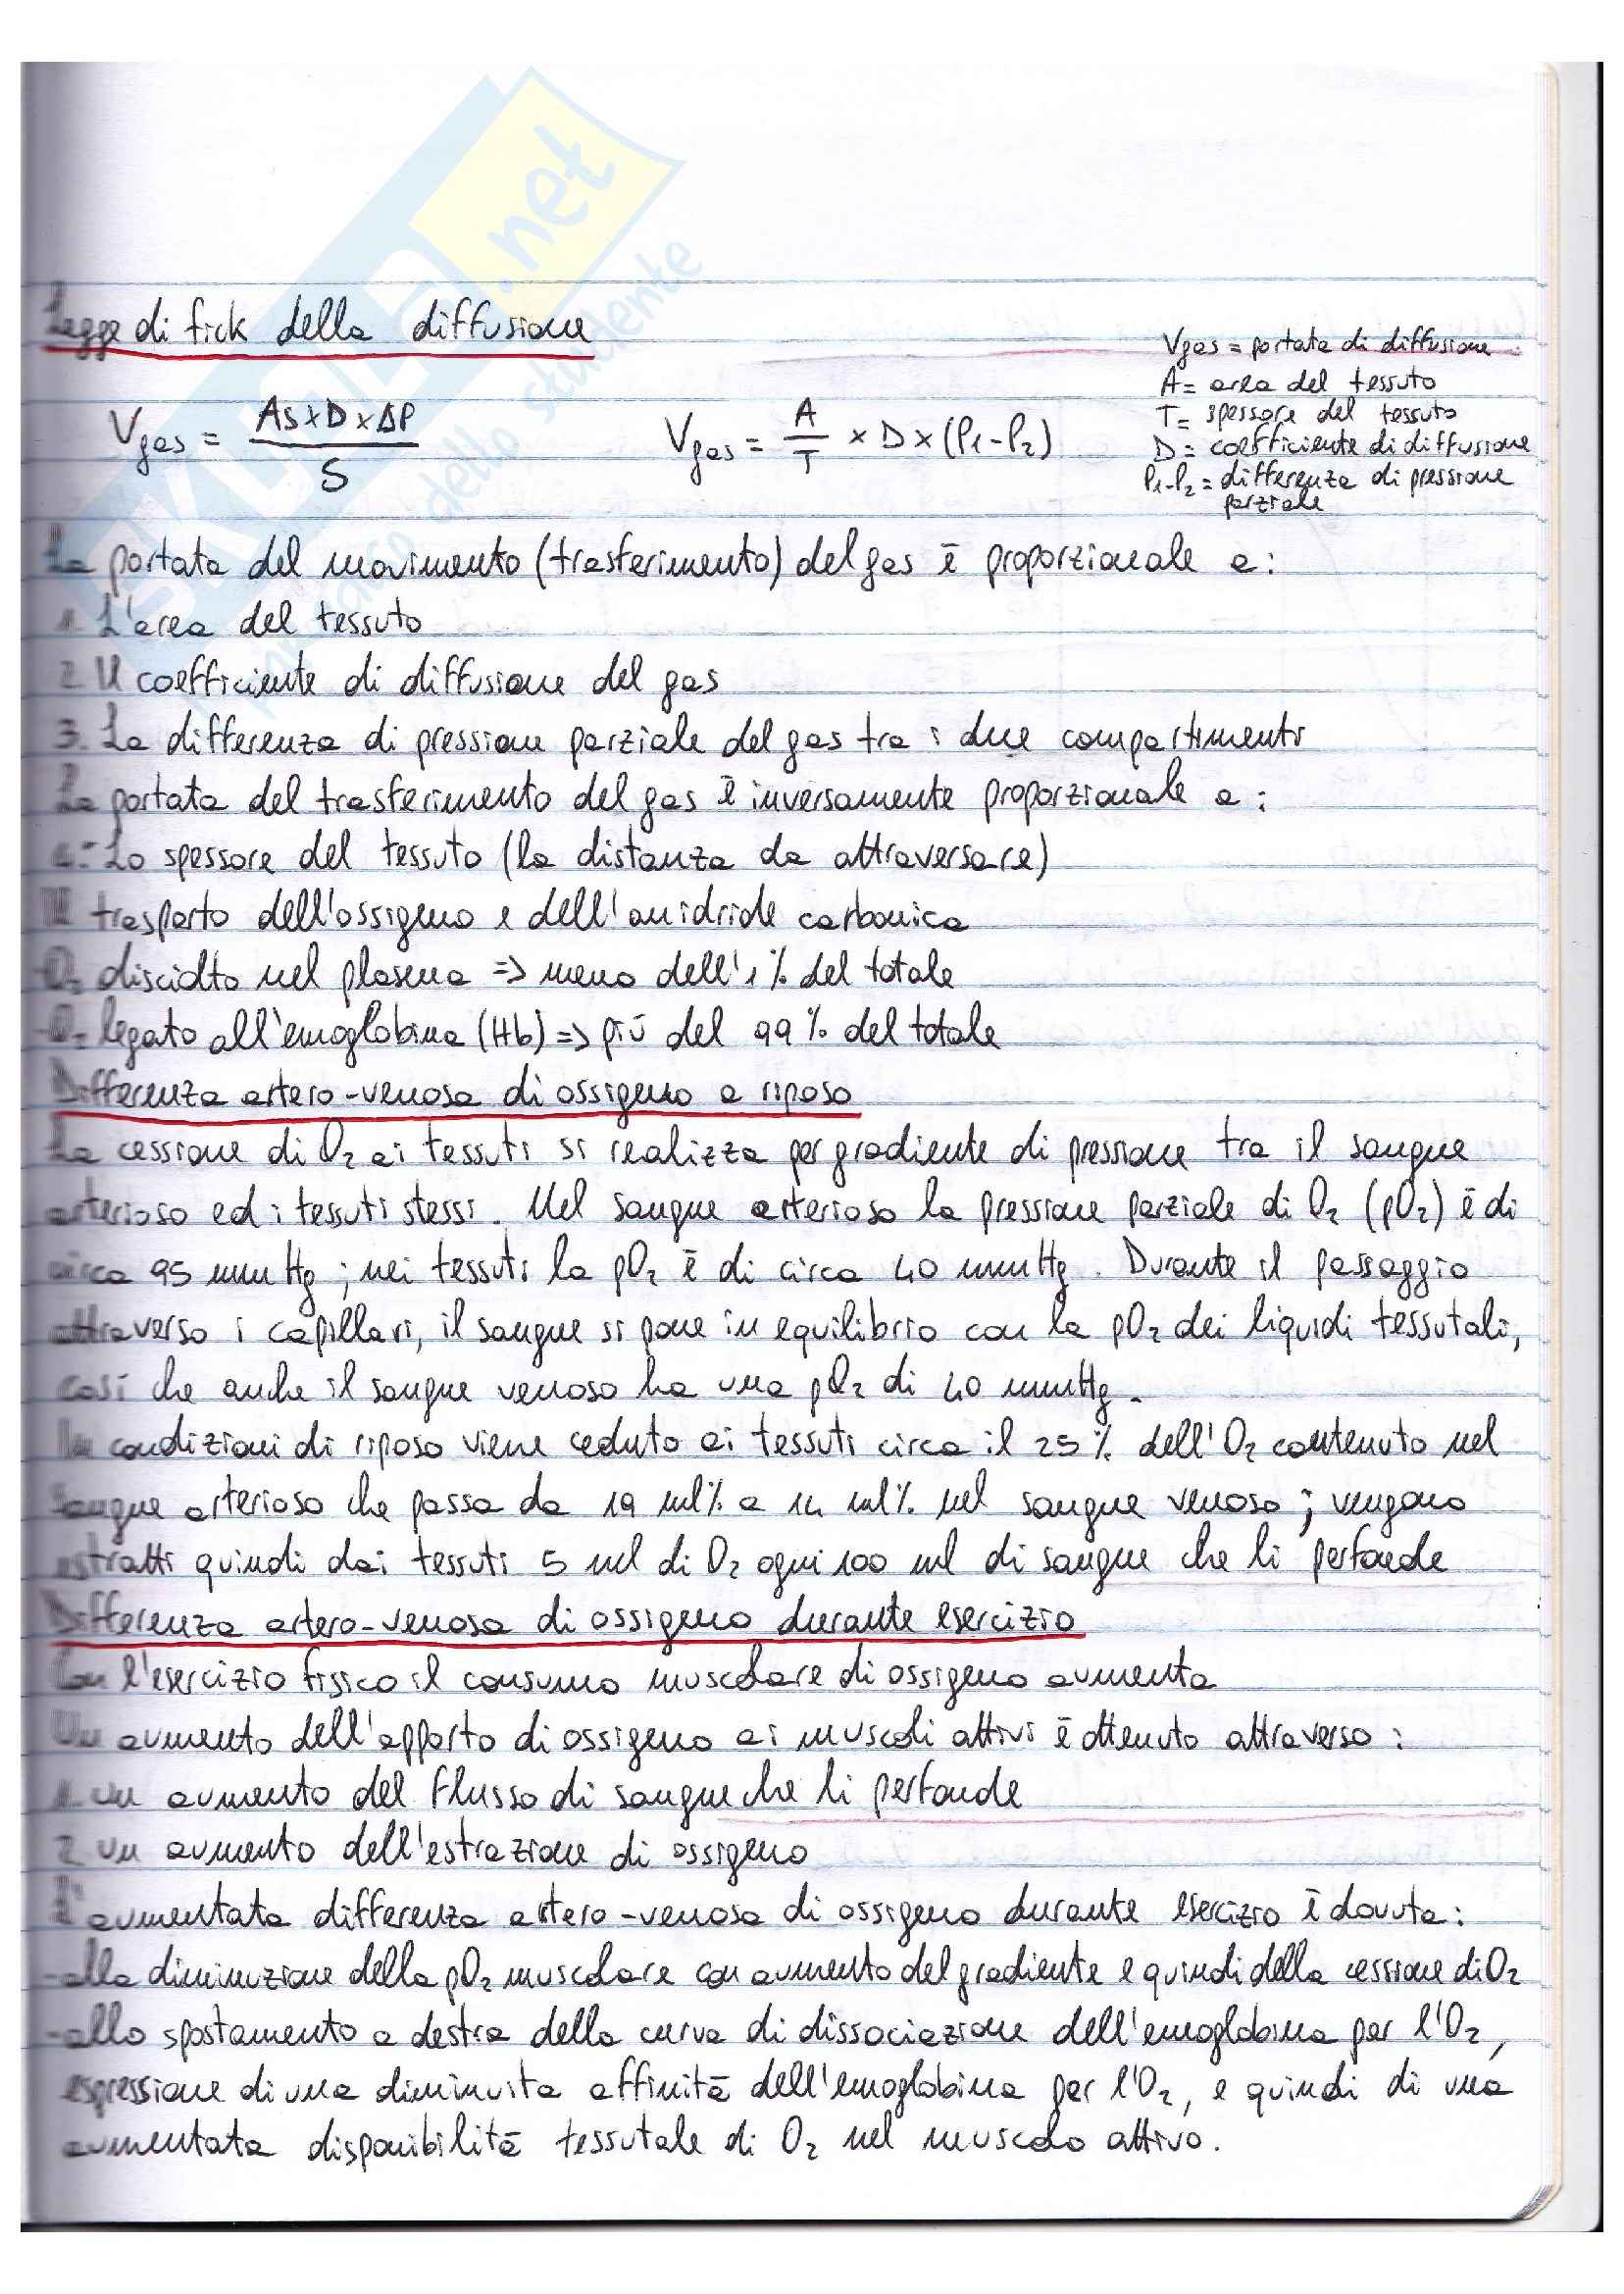 Legge di fick della diffusione
Vgas = As x D x ΔP / S
Vgas = A / T x D x (P1-P2)
Vgas = portata di diffusione
A = area del tessuto
T = spessore del tessuto
D = coefficiente di diffusione
P1-P2 = differenza di pressione
parziale
La portata del movimento (trasferimento) del gas è proporzionale a:
1. L'area del tessuto
2. Il coefficiente di diffusione del gas
3. La differenza di pressione parziale del gas tra i due compartimenti
La portata del trasferimento del gas è inversamente proporzionale a:
Lo spessore del tessuto (la distanza da attraversare)
Il trasporto dell'ossigeno e dell'anidride carbonica
-O2 disciolto nel plasma => meno dell'1% del totale
-O2 legato all'emoglobina (Hb) => più del 99% del totale
Differenza artero-venosa di ossigeno a riposo
La cessione di O2 ai tessuti si realizza per gradiente di pressione tra il sangue
arterioso ed i tessuti stessi. Nel sangue arterioso la pressione parziale di O2 (pO2) è di
circa 95 mmHg; nei tessuti la pO2 è di circa 40 mmHg. Durante il passaggio
attraverso i capillari, il sangue si pone in equilibrio con la pO2 dei liquidi tessutali,
così che anche il sangue venoso ha una pO2 di 40 mmHg.
In condizioni di riposo viene ceduto ai tessuti circa il 25% dell'O2 contenuto nel
sangue arterioso che passa da 19 ml% a 14 ml% nel sangue venoso; vengono
estratti quindi dai tessuti 5 ml di O2 ogni 100 ml di sangue che li perfonde
Differenza artero-venosa di ossigeno durante esercizio
Con l'esercizio fisico il consumo muscolare di ossigeno aumenta
Un aumento dell'apporto di ossigeno ai muscoli attivi è ottenuto attraverso:
1. un aumento del flusso di sangue che li perfonde
2. un aumento dell'estrazione di ossigeno
L'aumentata differenza artero-venosa di ossigeno durante esercizio è dovuta:
-alla diminuzione della pO2 muscolare con aumento del gradiente e quindi della cessione di O2
-allo spostamento a destra della curva di dissociazione dell'emoglobina per l'O2,
espressione di una diminuita affinità dell'emoglobina per l'O2, e quindi di una
aumentata disponibilità tessutale di O2 nel muscolo attivo.